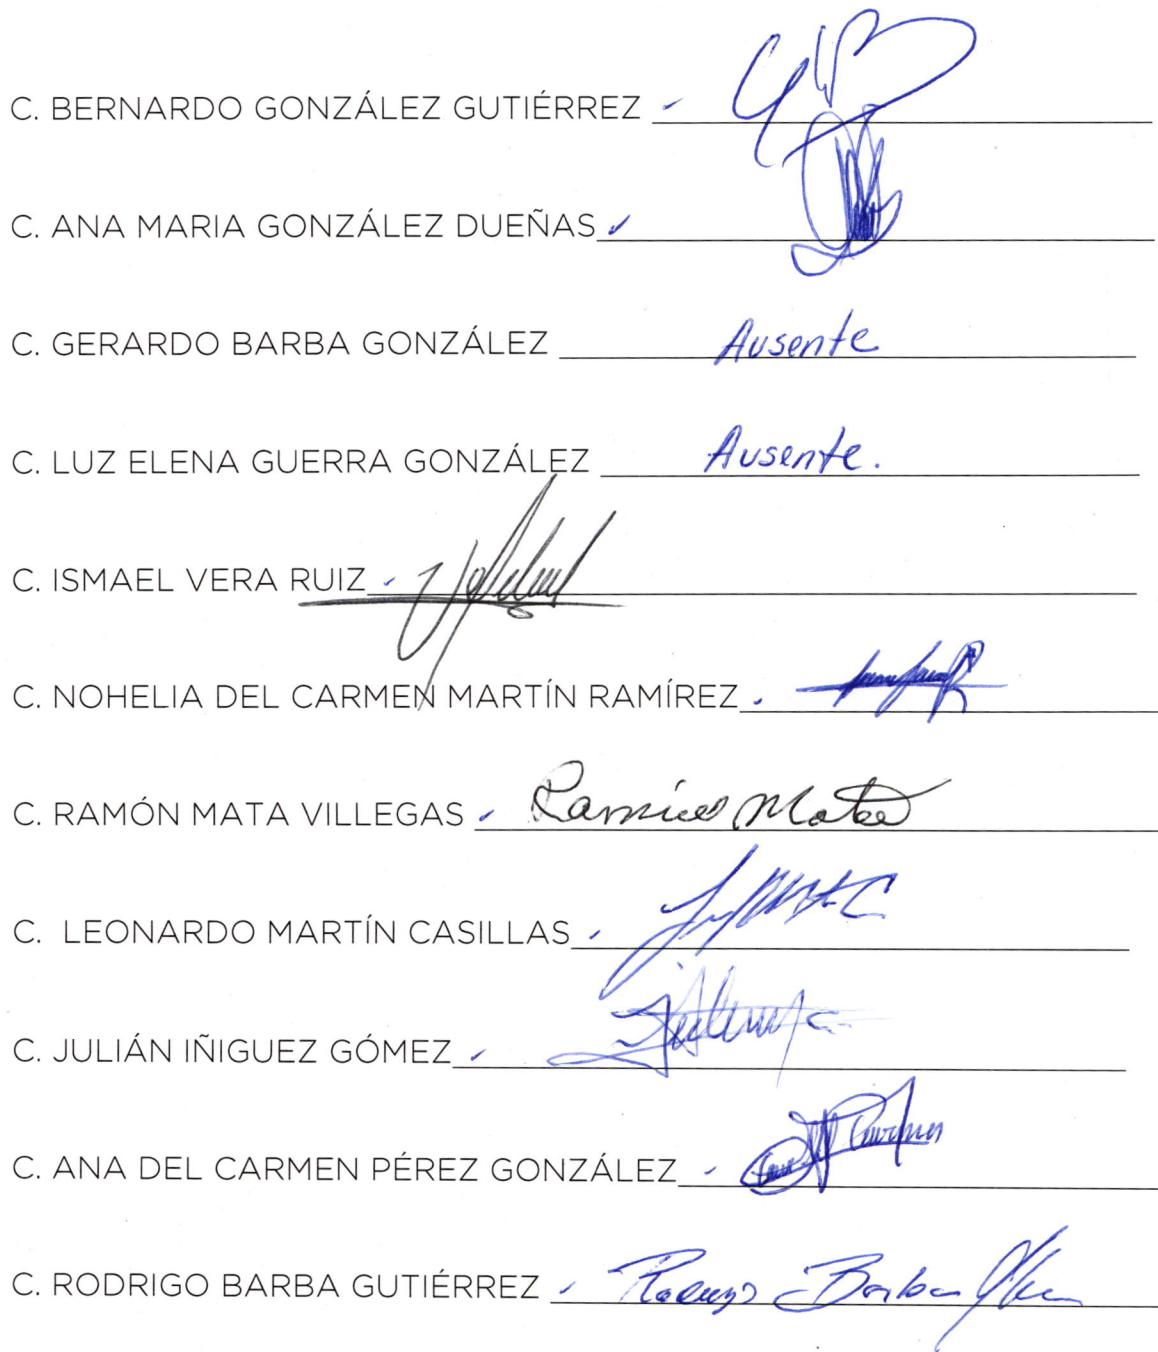 C. BERNARDO GONZÁLEZ GUTIÉRREZ
C. ANA MARIA GONZÁLEZ DUEÑAS
C. GERARDO BARBA GONZÁLEZ Ausente
C. LUZ ELENA GUERRA GONZÁLEZ Ausente.
C. ISMAEL VERA RUIZ
C. NOHELIA DEL CARMEN MARTÍN RAMÍREZ
C. RAMÓN MATA VILLEGAS Mata
C. LEONARDO MARTÍN CASILLAS
C. JULIÁN IÑIGUEZ GÓMEZ
C. ANA DEL CARMEN PÉREZ GONZÁLEZ
C. RODRIGO BARBA GUTIÉRREZ Barba